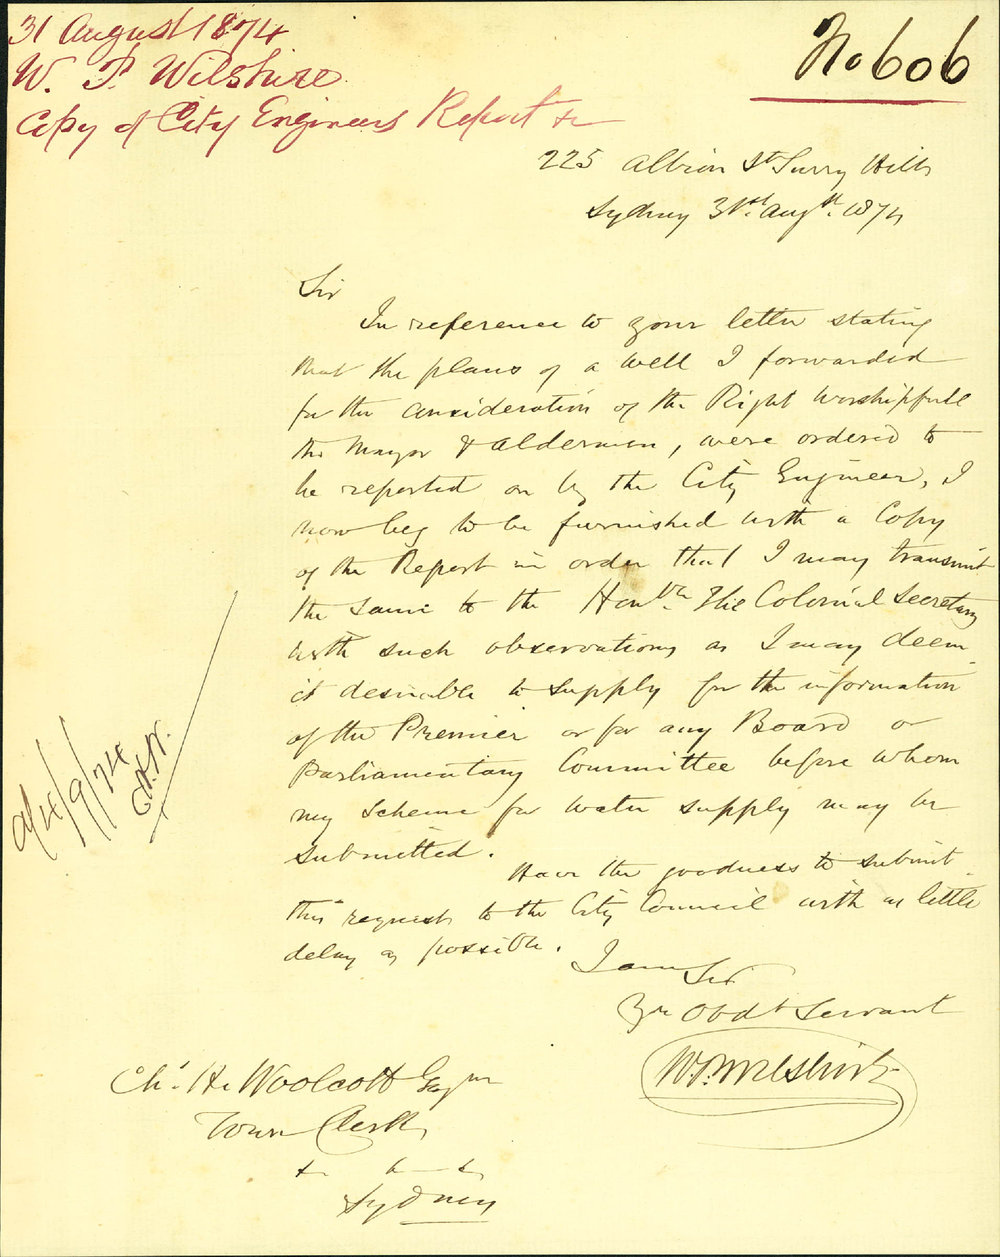 31 August 1874
W. P. Wilshire
Copy of City Engineers Report &c
No 606
225 Albion St Surry Hills
Sydney 31st Augst. 1874
Sir
In reference to your letter stating
that the plans of a well I forwarded
for the consideration of the Right Worshipfull
the Mayor & Aldermen, were ordered to
be reported on by the City Engineer, I
now beg to be furnished with a Copy
of the Report in order that I may transmit
the same to the Honble The Colonial Secretary
with such observations as I may deem
it desirable to supply for the information
of the Premier or for any Board or
Parliamentary Committee before whom
my scheme for water supply may be
submitted.
Have the goodness to submit
this request to the City Council with as little
delay as possible.
I am Sir
Yr Obdt Servant
W. P. Wilshire
Chs. H. Woolcott Esqre
Town Clerk
&c &c &c
Sydney
4/9/74
C.H.W.